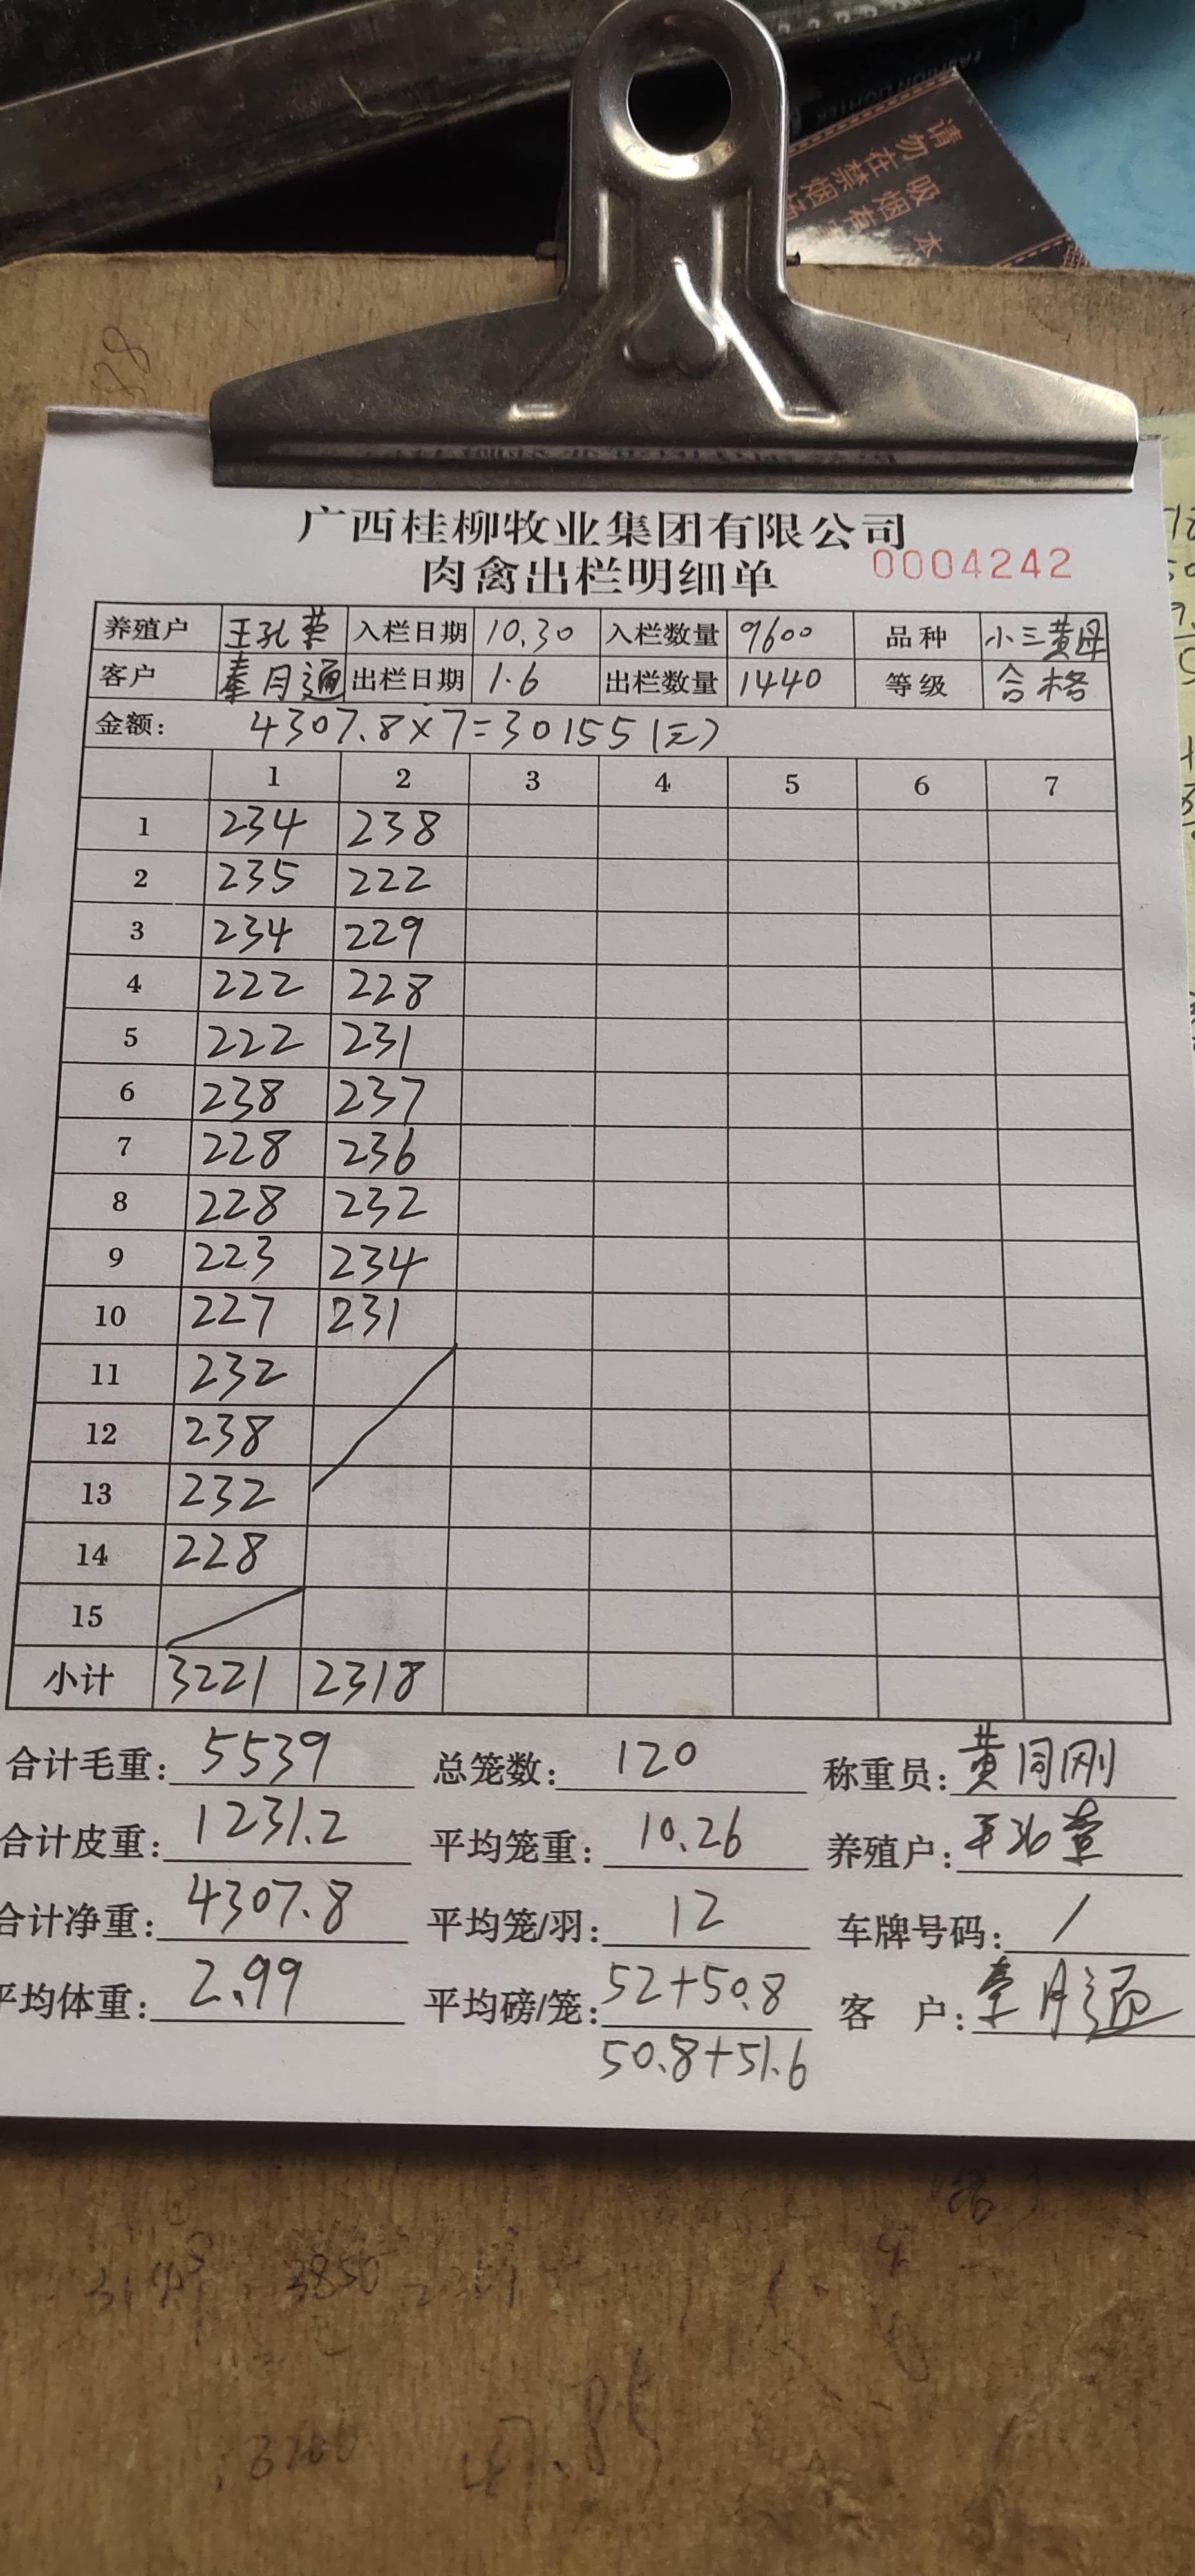 FASHION LIGHTER
请勿在禁烟
吸烟有
本
广西桂柳牧业集团有限公司
肉禽出栏明细单 0004242
养殖户 王孔 入栏日期 10.30 入栏数量 9600 品种 小三黄母
客户 秦月通 出栏日期 1.6 出栏数量 1440 等级 合格
金额: 4307.8×7=30155(元)
1 2 3 4 5 6 7
1 234 238
2 235 222
3 234 229
4 222 228
5 222 231
6 238 237
7 228 236
8 228 232
9 223 234
10 227 231
11 232
12 238
13 232
14 228
15
小计 3221 2318
合计毛重: 5539 总笼数: 120 称重员: 黄同刚
合计皮重: 1231.2 平均笼重: 10.26 养殖户: 王孔
合计净重: 4307.8 平均笼/羽: 12 车牌号码: /
平均体重: 2.99 平均磅/笼: 52+50.8 客户: 秦月通
50.8+51.6